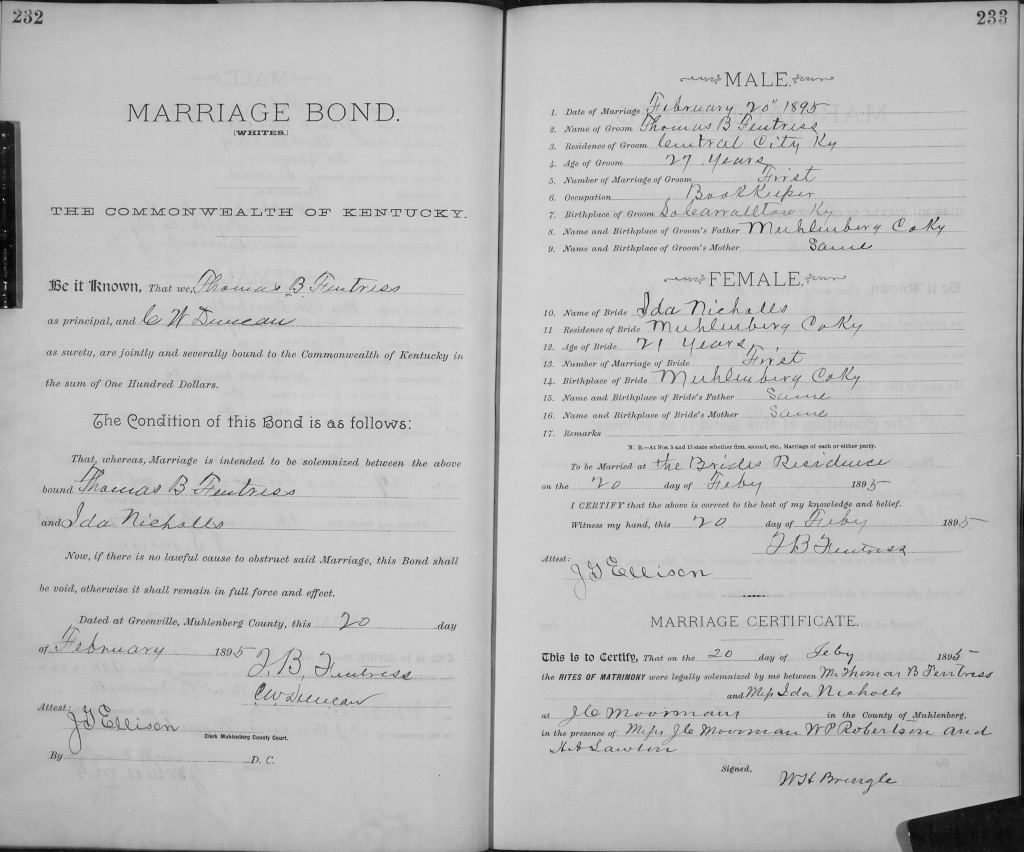 232
MARRIAGE BOND.
(WHITES.)
THE COMMONWEALTH OF KENTUCKY.
Be it Known, That we, Thomas B Fentress
as principal, and C W Duncan
as surety, are jointly and severally bound to the Commonwealth of Kentucky in
the sum of One Hundred Dollars.
The Condition of this Bond is as follows:
That, whereas, Marriage is intended to be solemnized between the above
bound Thomas B Fentress
and Ida Nicholls
Now, if there is no lawful cause to obstruct said Marriage, this Bond shall
be void, otherwise it shall remain in full force and effect.
Dated at Greenville, Muhlenberg County, this 20 day
of February 1895
T. B. Fentress
C W Duncan
Attest:
J G Ellison
Clerk Muhlenberg County Court.
By D. C.
233
MALE.
1. Date of Marriage February 20" 1895
2. Name of Groom Thomas B Fentress
3. Residence of Groom Central City Ky
4. Age of Groom 27 years
5. Number of Marriage of Groom First
6. Occupation Book Keeper
7. Birthplace of Groom So Carrallton Ky
8. Name and Birthplace of Groom's Father Muhlenberg Co Ky
9. Name and Birthplace of Groom's Mother Same
FEMALE.
10. Name of Bride Ida Nicholls
11 Residence of Bride Muhlenberg Co Ky
12. Age of Bride 21 years
13. Number of Marriage of Bride First
14. Birthplace of Bride Muhlenberg Co Ky
15. Name and Birthplace of Bride's Father Same
16. Name and Birthplace of Bride's Mother Same
17. Remarks
N. B.—At Nos. 5 and 13 state whether first, second, etc., Marriage of each or either party.
To be Married at the Brides Residence
on the 20 day of Feby 1895
I CERTIFY that the above is correct to the best of my knowledge and belief.
Witness my hand, this 20 day of Feby 1895
T B Fentress
Attest:
J G Ellison
MARRIAGE CERTIFICATE.
This is to Certify, That on the 20 day of Feby 1895
the RITES OF MATRIMONY were legally solemnized by me between Mr Thomas B Fentress
and Miss Ida Nicholls
at J C Moormans in the County of Muhlenberg,
in the presence of J C Moorman W P Robertson and
Lawton
Signed,
W H Bringle